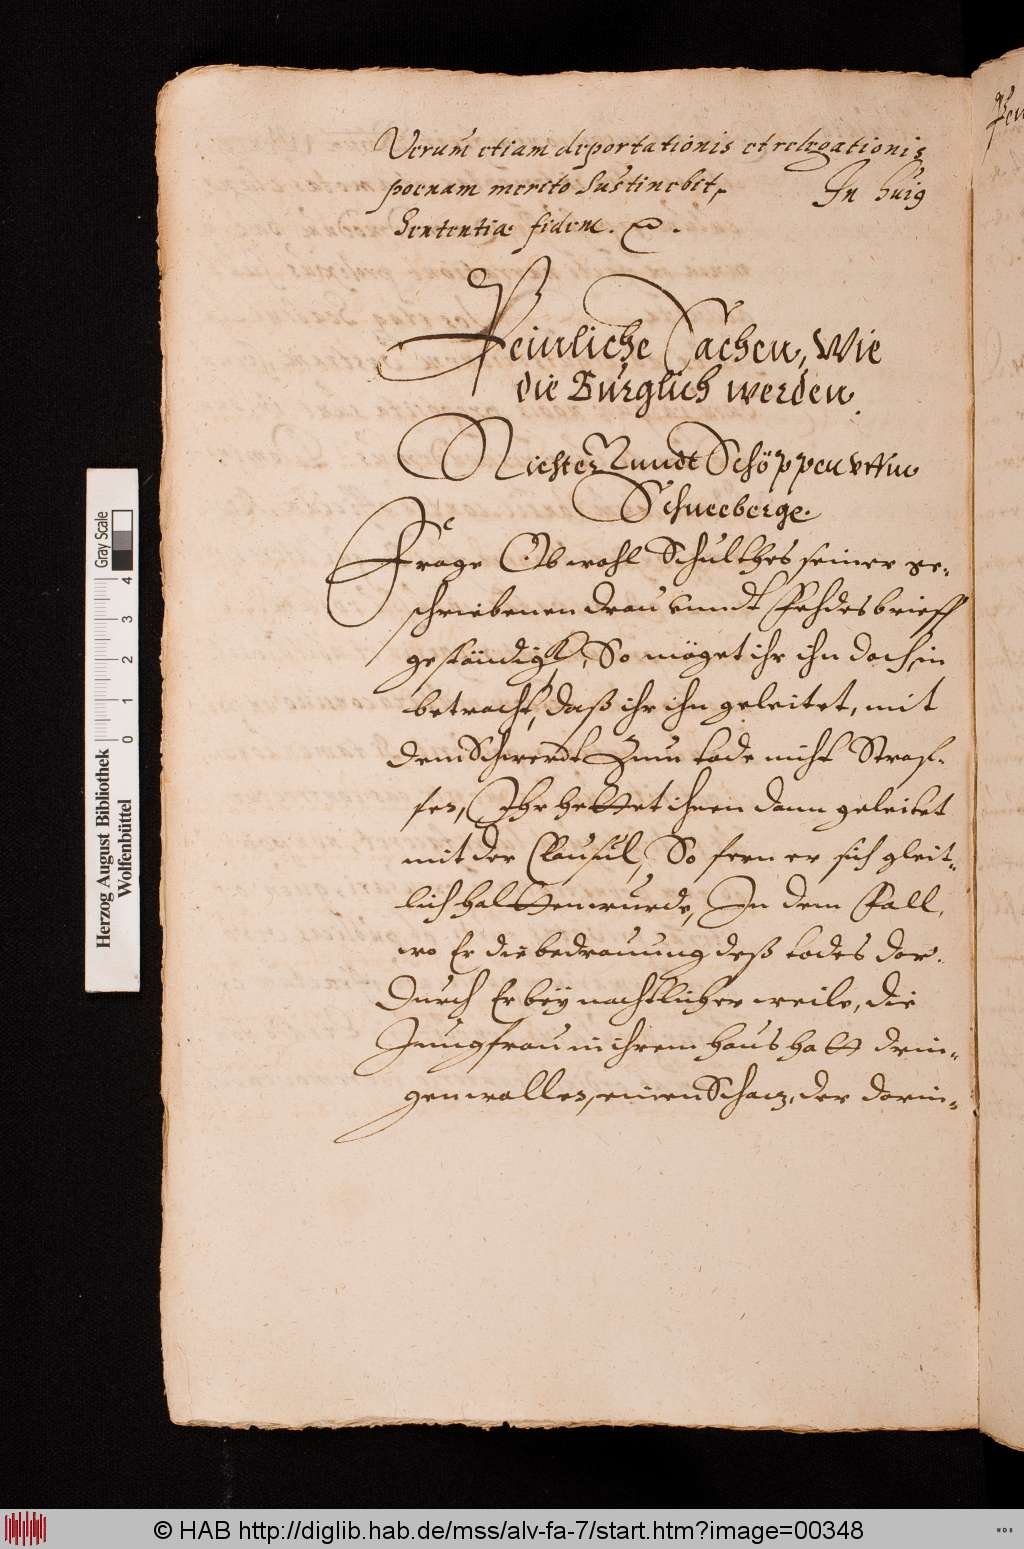 Verum etiam deportationis et relegationis
poenam merito sustinebit, In huig
Sententiæ fidem.
Peinliche Sachen, Wie
die Burglich werden
Richter Vundt Schöppen vffm
Schneeberge.
Frage Ob wohl Schulthes seiner ge-
schriebenen drau vundt Fehdesbrieff
geständigk, So möget ihr ihn doch, in
betracht, daß ihr ihn geleitet, mit
dem Schwerdt Zum tode nicht Straf-
fen, Ihr hettet ihnen dann geleitet
mit der Clausul, So fern er sich gleit-
lich haltten wurde, In dem Fall,
wo Er die bedrauung deß todes dar-
Durch Er bey nachtlicher weile, die
Jungfrau in ihrem Haus hatt drin-
gen wollen, einen Schatz, der darin-
Herzog August Bibliothek
Wolfenbüttel
0 1 2 3 4
Gray Scale
© HAB http://diglib.hab.de/mss/alv-fa-7/start.htm?image=00348